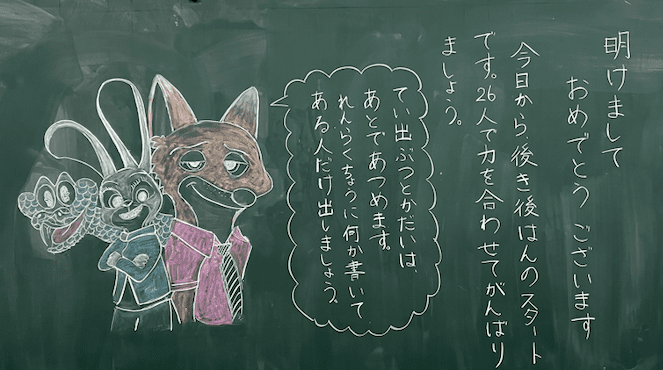 明けまして
おめでとうございます
今日から後き後はんのスタート
です。26人で力を合わせてがんばり
ましょう。
てい出ぶつとかだいは
あとであつめます。
れんらくちょうに何か書いて
ある人だけ出しましょう。